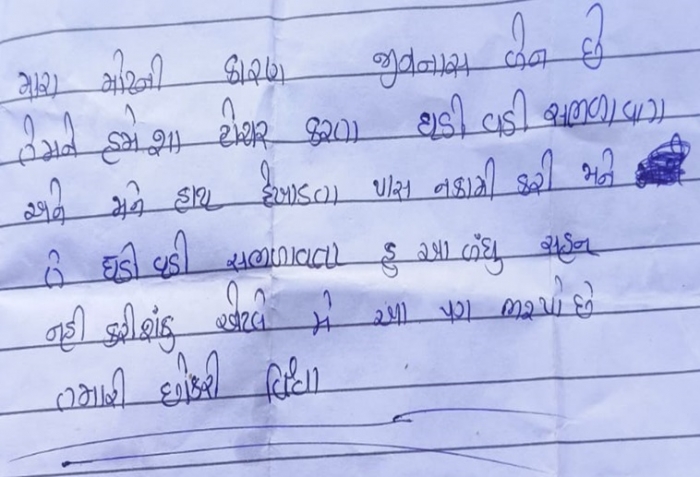 મારા મોતની કારણ જીવનાસ બેન છે
તેમને હમેશા ટોચર કરતા ઘડી વડી સભળાવાગ
અને મને હાથ દેખાડતા પાસ નકામી કરી મને
તે ઘડી વડી સભળાવતા હુ આ બંધુ સહન
નહી કરી શકુ એટલે મે આ પગ ભરયો છે
તમારી છોકરી